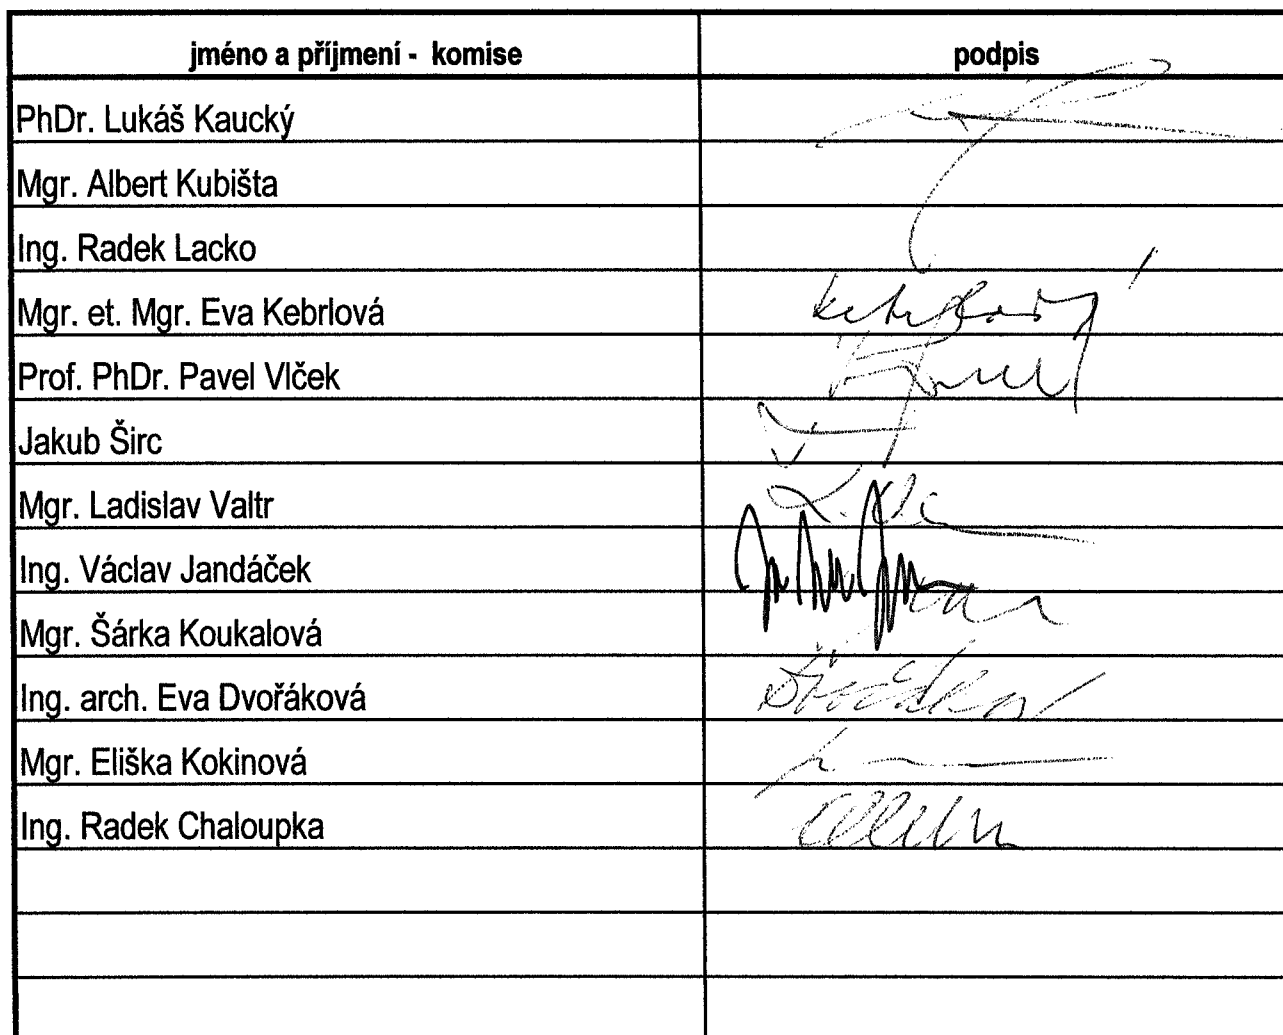 jméno a příjmení - komise podpis
PhDr. Lukáš Kaucký
Mgr. Albert Kubišta
Ing. Radek Lacko
Mgr. et. Mgr. Eva Kebrlová
Prof. PhDr. Pavel Vlček
Jakub Širc
Mgr. Ladislav Valtr
Ing. Václav Jandáček
Mgr. Šárka Koukalová
Ing. arch. Eva Dvořáková
Mgr. Eliška Kokinová
Ing. Radek Chaloupka